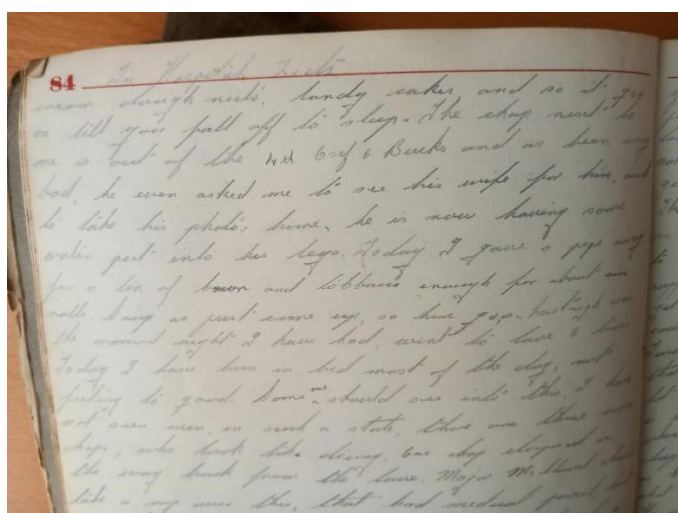 84 In Hospital
cream dough nuts, lardy cakes and so it goes
on till you fall off to sleep. The chap next to
me is out of the 4th Oxf & Bucks and as been very
bad, he even asked me to see his wife for him, and
to take his photo, home, he is now having some
water put into his legs. Today I gave a pipe away
for a tin of and tobbaco enough for about six
rolls. Soup as just come up, so here goes. Last night was
the worst night I have had, went to lave 8 times
Today I have been in bed most of the day, not
feeling to good. Some one should see into this, I have
not seen men, in such a state, there are three more
chaps, who look like dieing. One chap on
the way back from the lave. Major
take a over this, that had medical